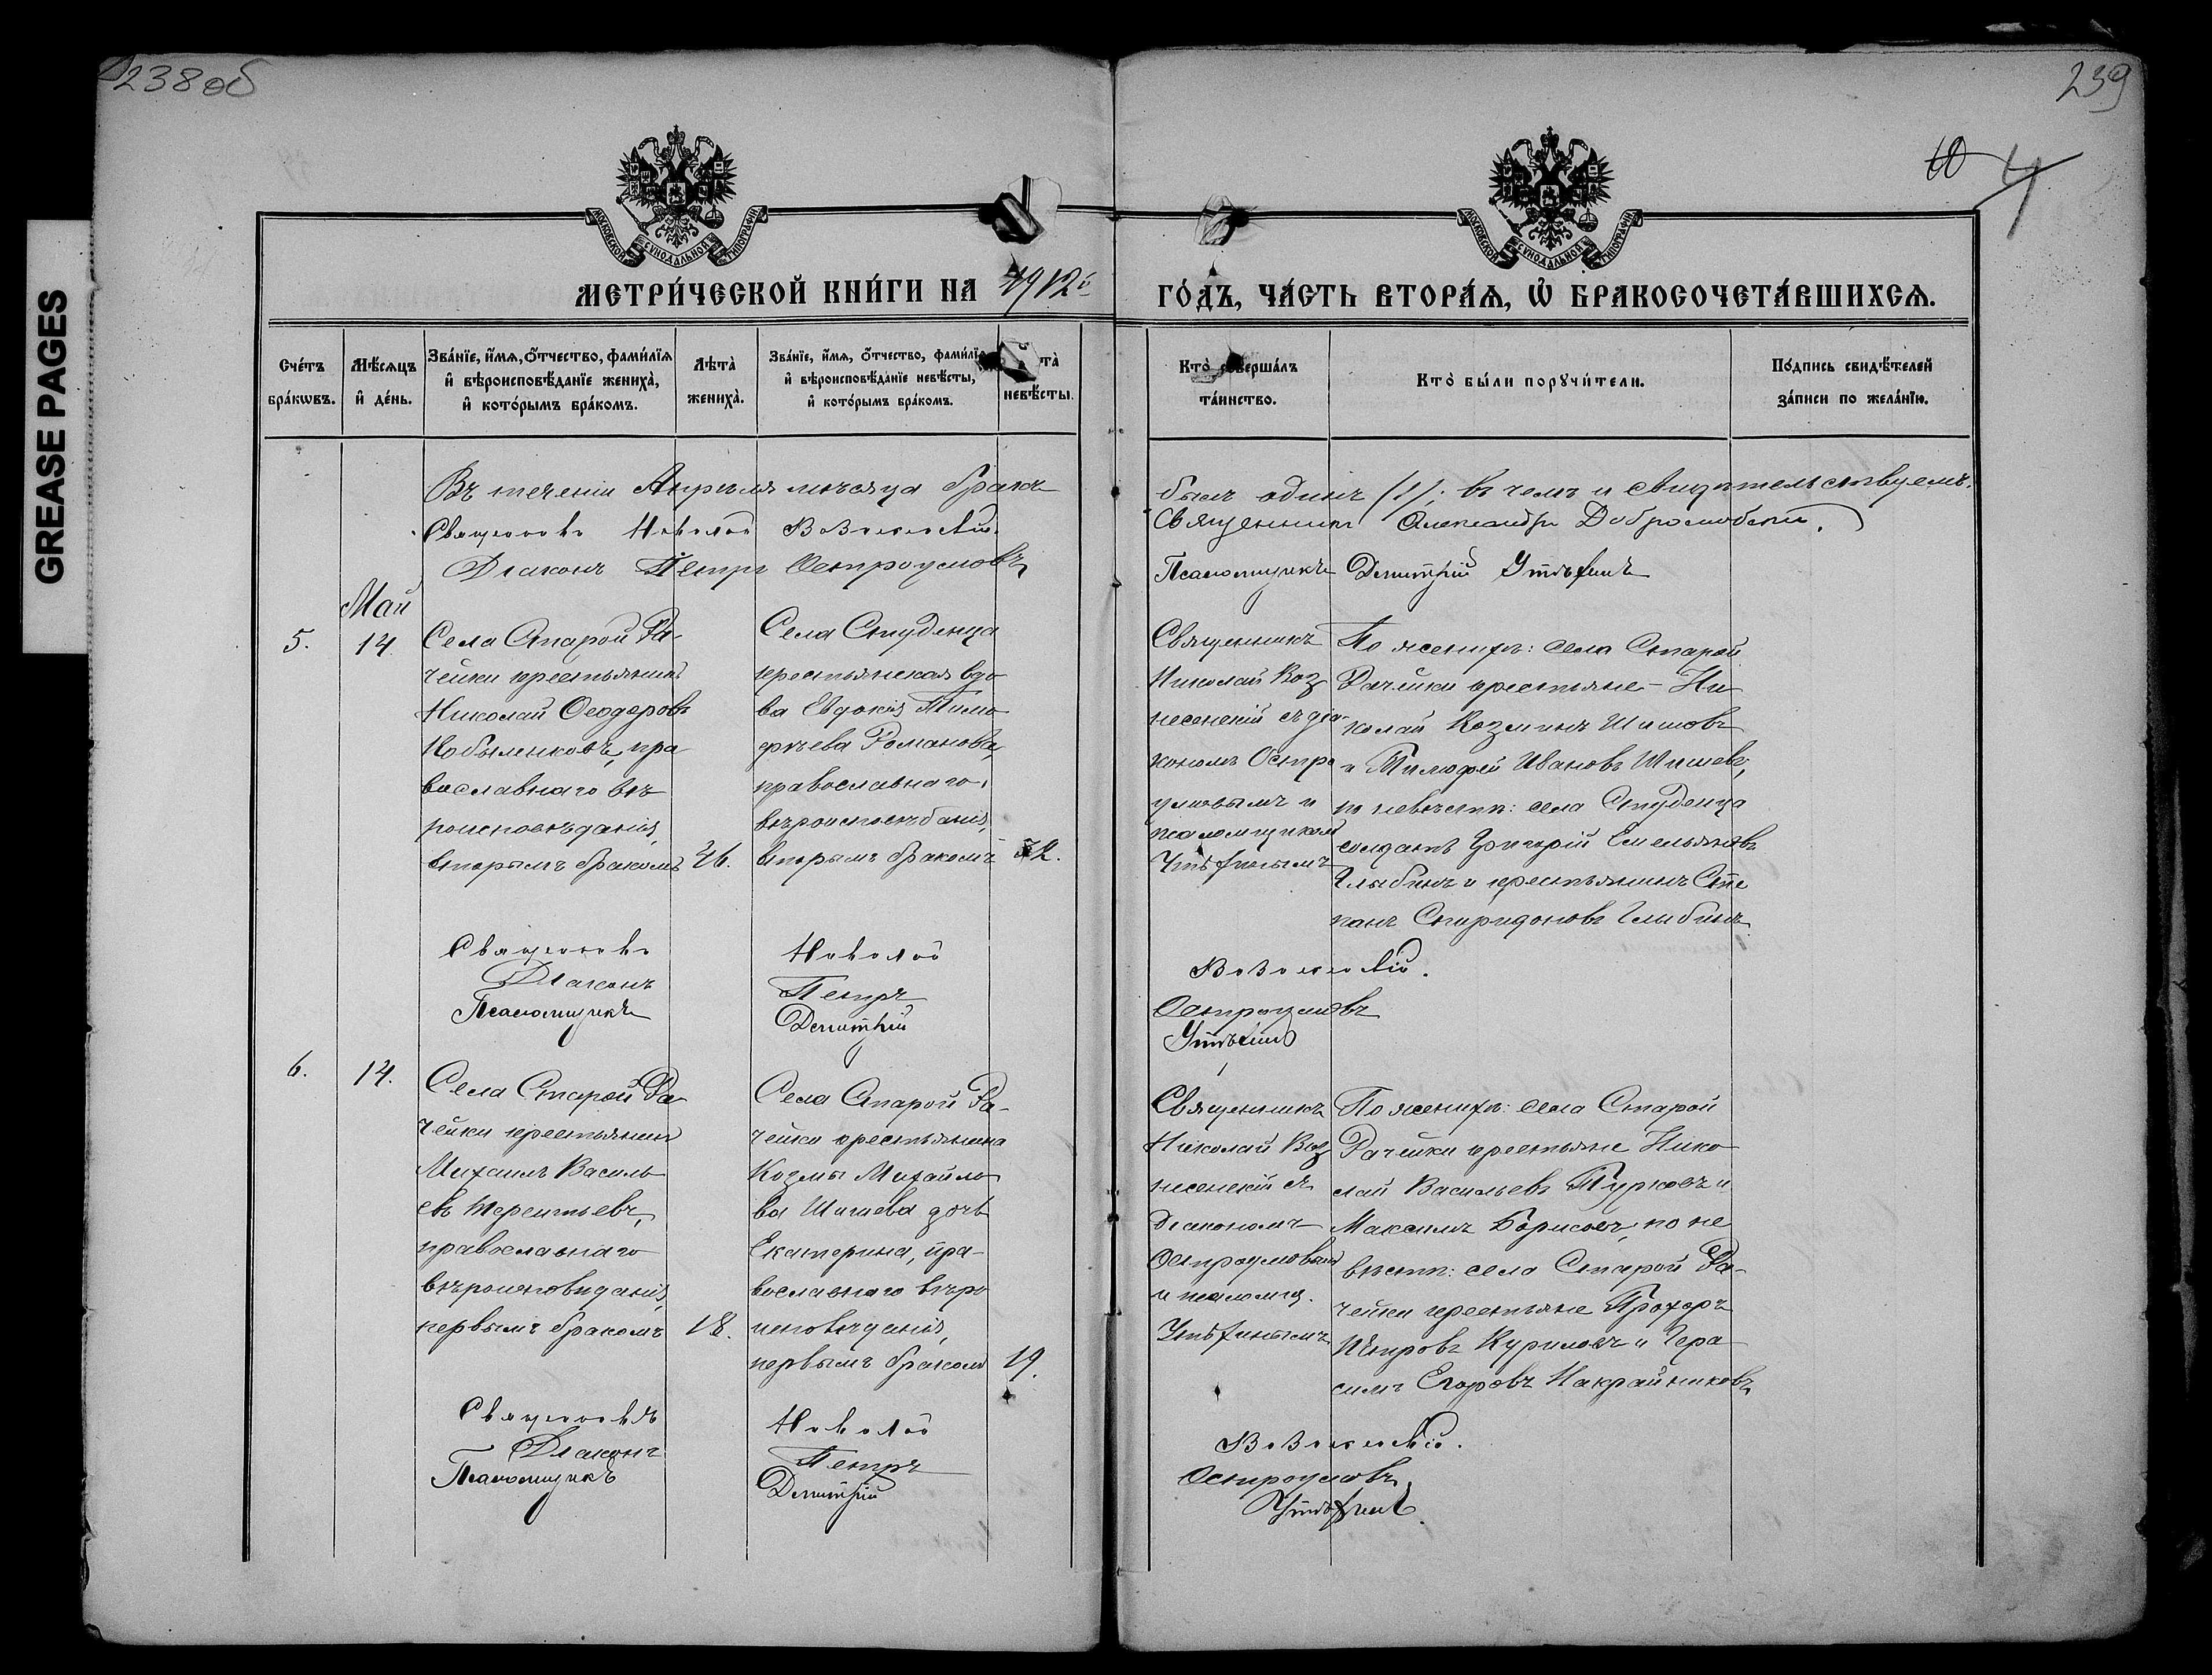 238 об
239
10
4
GREASE PAGES
МОСКОВСКОЙ СѴНОДАЛЬНОЙ ТИПОГРАФІИ
МОСКОВСКОЙ СѴНОДАЛЬНОЙ ТИПОГРАФІИ
МЕТРИ́ЧЕСКОЙ КНИ́ГИ НА 1912й
ГО́ДЪ, ЧА́СТЬ ВТОРА́Ѧ, Ѡ҆ БРАКОСОЧЕТА́ВШИХСѦ.
Сче́тъ бра́кѡвъ.
Мѣ́сѧцъ и҆ де́нь.
Зва́нїе, и҆́мѧ, ѻ҆́тчество, фами́лїѧ и҆ вѣроисповѣ́данїе жениха̀, и҆ кото́рымъ бра́комъ.
Лѣта̀ жениха̀.
Зва́нїе, и҆́мѧ, ѻ҆́тчество, фами́лїѧ и҆ вѣроисповѣ́данїе невѣ́сты, и҆ кото́рымъ бра́комъ.
та̀ невѣ́сты.
Кто̀ соверша́лъ та́инство.
Кто̀ бы́ли порꙋчи́тели.
По́дпись свидѣ́телей за́писи по жела́нїю.
Въ теченіи Апрѣля мѣсяца бракъ
былъ одинъ (1). въ чемъ и свидѣтельствуемъ:
Священникъ Николай Вознесенскій.
Священникъ Александръ Добросмобскій.
Діаконъ Петръ Остроумовъ,
Псаломщикъ Димитрій Утѣхинъ
Май
5.
14
Села Старой Ра-
чейки крестьянинъ
Николай Ѳеодоровъ
Кобыленковъ, пра
вославнаго вѣ
роисповѣданія,
вторымъ бракомъ
46.
Села Студенца
крестьянская вдо
ва Евдокія Тимо
фѣева Романова,
православнаго
вѣроисповѣданія,
вторымъ бракомъ
32.
Священникъ
Николай Воз
несенскій съ діа
кономъ Остро
умовымъ и
псаломщикомъ
Утѣхинымъ
По женихѣ: села Старой
Рачейки крестьяне - Ни
колай Козминъ Шишовъ
и Тимофей Ивановъ Шишевъ,
по невѣстѣ: села Студенца
солдатъ Григорій Емельяновъ
Глыбинъ и крестьянинъ Сте
панъ Спиридоновъ Глыбинъ
Священникъ Николай Вознесенскій.
Діаконъ Петръ Остроумовъ
Псаломщикъ Димитрій Утѣхинъ
6.
14.
Села Старой Ра-
чейки крестьянинъ
Михаилъ Василь
евъ Терентьевъ,
православнаго
вѣроисповѣданія,
первымъ бракомъ
18.
Села Старой Ра-
чейки крестьянина
Козмы Михайло
ва Шишева дочь
Екатерина, пра-
вославнаго вѣро
исповѣданія,
первымъ бракомъ
19.
Священникъ
Николай Воз
несенскій съ
діакономъ
Остроумовымъ
и псаломщ.
Утѣхинымъ
По женихѣ: села Старой
Рачейки крестьяне Нико
лай Васильевъ Турковъ и
Максимъ Борисовъ, по не
вѣстѣ: села Старой Ра-
чейки крестьяне Прохоръ
Петровъ Куриловъ и Гера
симъ Егоровъ Накрайниковъ,
Священникъ Николай Вознесенскій.
Діаконъ Петръ Остроумовъ
Псаломщикъ Димитрій Утѣхинъ.